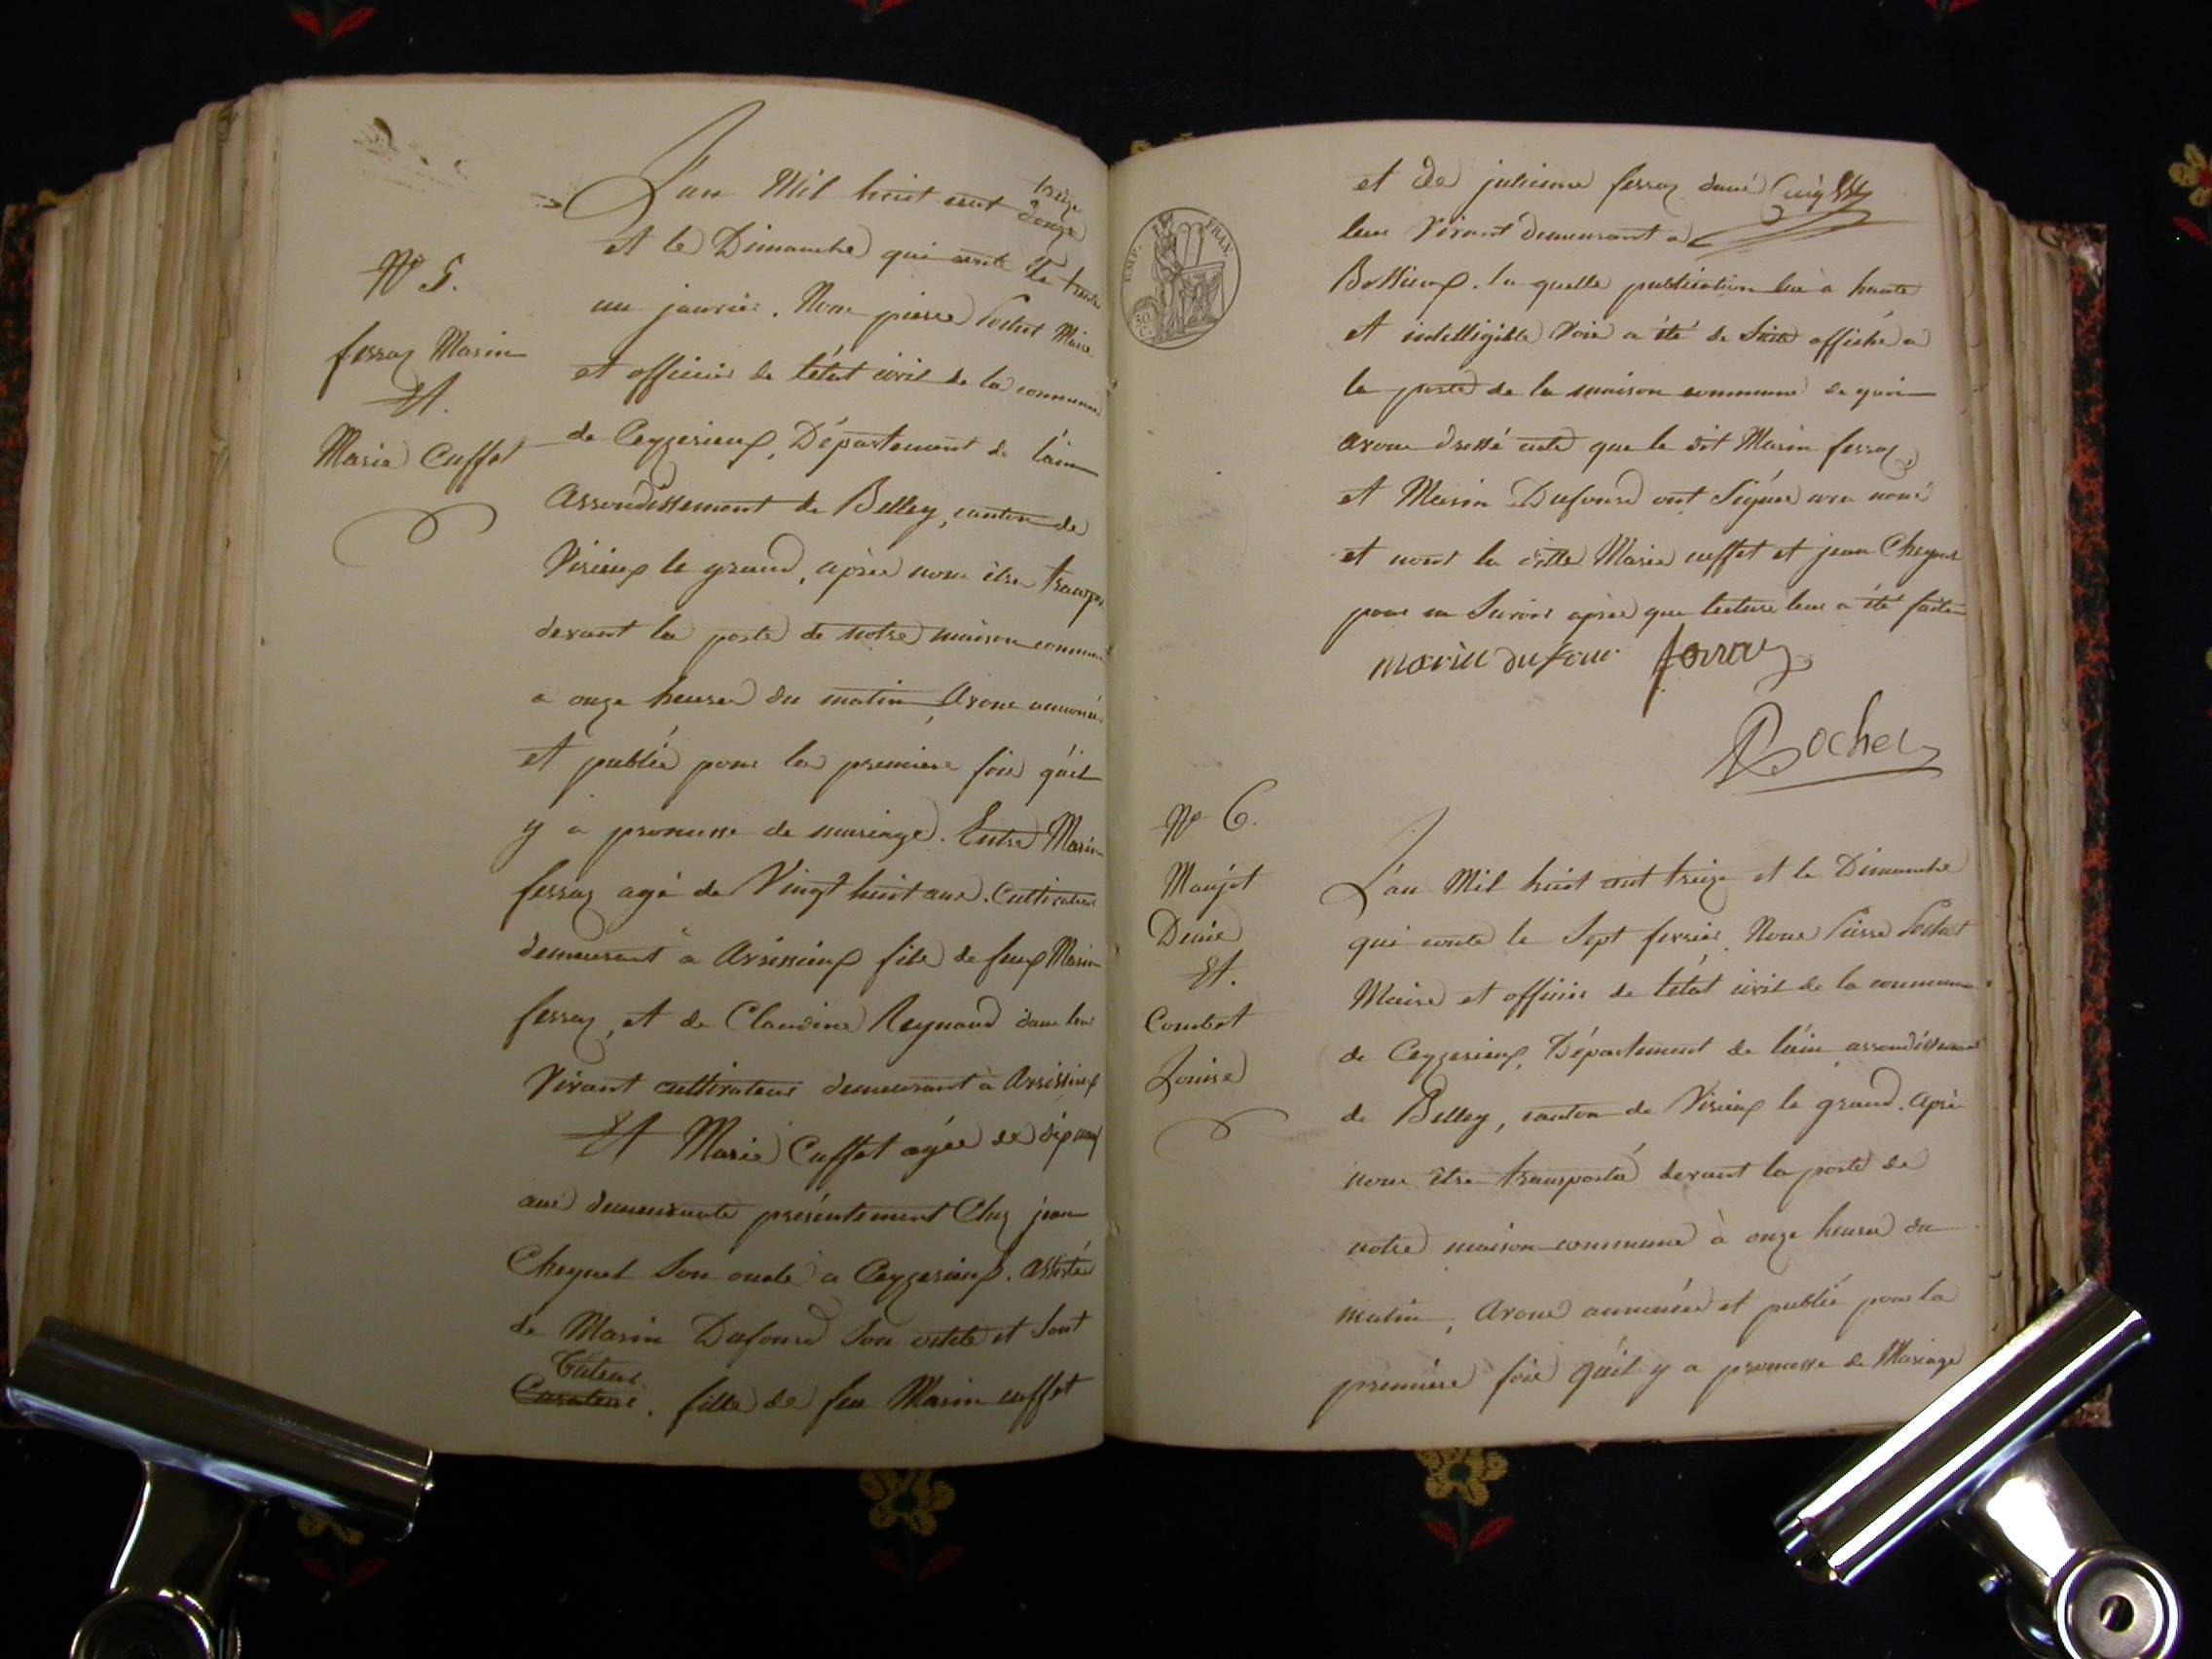 N° 5.
ferraz Marin
Et.
Marie Cuffet
L'an Mil huit cent treize
douze
et le Dimanche qui conte le trente
un janvier. Nous pierre Maire
et officier de l'état civil de la commune
de Ceyzerieux, Département de l'ain
Arrondissement de Belley, canton de
Virieux le grand, après nous être transpor
devant la porte de notre maison commune
a onze heures du matin, Avons annoncé
et publié pour la première fois qu'il
y a promesse de mariage. Entre Marin
ferraz agé de Vingt huit ans. Cultivateur
demeurant à Avrissieux fils de feux Marin
ferraz, et de Claudine Reynaud dans leur
Vivant cultivateurs demeurant à Avrissieux
Et Marie Cuffet agée de dix neuf
ans demeurante présentement Chez jean
Cheynet Son oncle a Ceyzerieux. assistée
de Marin Dufourd Son oncle et Sont
Tuteur.
Curateur. fille de feu Marin cuffet
EMP. FRAN.
et de julienne ferraz dans
leur Vivant demeurant a
la quelle publication lue à haute
et intelligible Voix a été de Suite affiché a
la porte de la maison commune de quoi
avons dressé acte que le dit Marin ferraz
et Marin Dufourd ont Signés avec nous
et nont la ditte Marie cuffet et jean Cheynet
pour ne Savoir après que lecture leur a été faite
marin dufour ferraz
Rochet
N° 6.
Maujot
Denie
Et.
Combet
Louise
L'an Mil huit cent treize et le Dimanche
qui conte le Sept fevrier. Nous Pierre
Maire et officier de l'état civil de la commune
de Ceyzerieux, Département de l'ain arrondissement
de Belley, canton de Virieux le grand. Après
nous être transporté devant la porte de
notre maison commune à onze heures du
matin, Avons annoncée et publié pour la
première fois qu'il y a promesse de Mariage